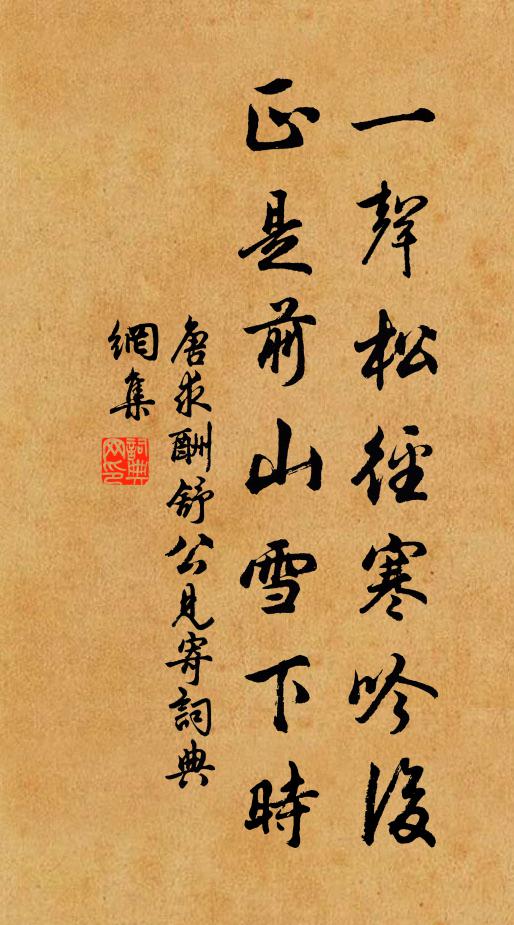 一聲松徑寒吟後
正是前山雪下時
唐求酬舒公見寄詞典
網集
詞典網印